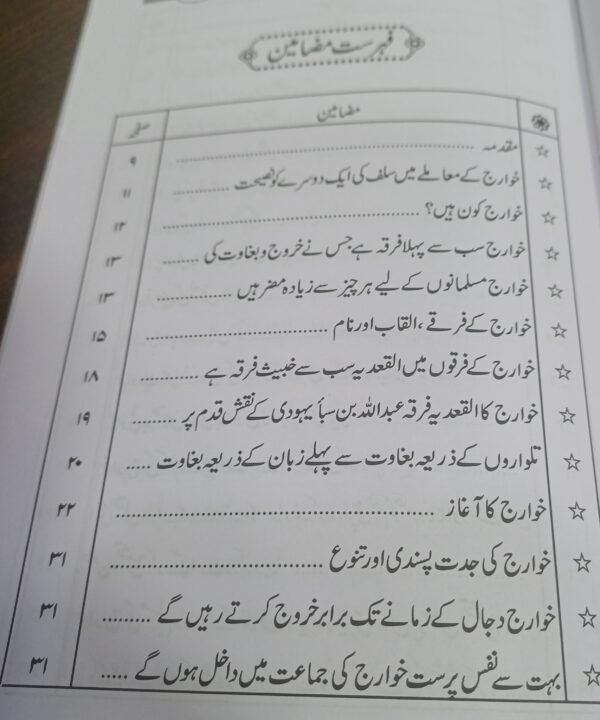 فہرست مضامین
مضامین صفحہ
☆ مقدمہ ........ ۹
☆ خوارج کے معاملے میں سلف کی ایک دوسرے کو نصیحت ........ ۱۱
☆ خوارج کون ہیں؟ ........ ۱۲
☆ خوارج سب سے پہلا فرقہ ہے جس نے خروج و بغاوت کی ........ ۱۳
☆ خوارج مسلمانوں کے لیے ہر چیز سے زیادہ مضر ہیں ........ ۱۳
☆ خوارج کے فرقے ، القاب اور نام ........ ۱۵
☆ خوارج کے فرقوں میں القعدیہ سب سے خبیث فرقہ ہے ........ ۱۸
☆ خوارج کا القعدیہ فرقہ عبداللہ بن سبأ یہودی کے نقش قدم پر ........ ۱۹
☆ تلواروں کے ذریعہ بغاوت سے پہلے زبان کے ذریعہ بغاوت ..... ۲۰
☆ خوارج کا آغاز ........ ۲۲
☆ خوارج کی جدت پسندی اور تنوع ........ ۳۱
☆ خوارج دجال کے زمانے تک برابر خروج کرتے رہیں گے ........ ۳۱
☆ بہت سے نفس پرست خوارج کی جماعت میں داخل ہوں گے ..... ۳۱